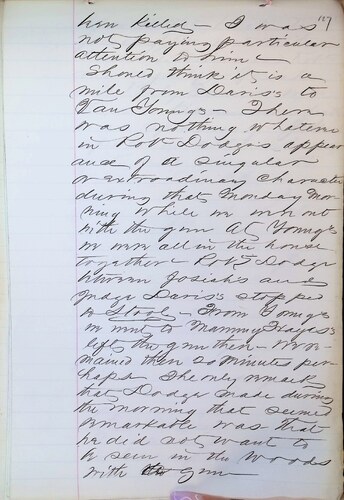 127
him killed - I was
not paying particular
attention to him -
Should think it is a
mile from Davis's to
Young's - There
was nothing whatever
in Rob Dodge's appear
ance of a singular
or extraordinary character
during that Monday Mor
ning while we were out
with the gun At Young's
we were all in the house
together - Rob Dodge
between Josiah's and
Davis's stopped
to Stool - From Young's
we went to Mammy Hayes's
left the gun there - We re
mained there 20 minutes per
haps - The only remark
that Dodge made during
the morning that seemed
remarkable was that
he did not want to
be seen in the woods
with gun